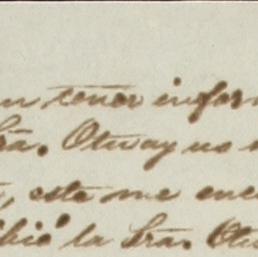 en tener infor
Sra. Otway no
, este me enc
ibió la Sra. Otw